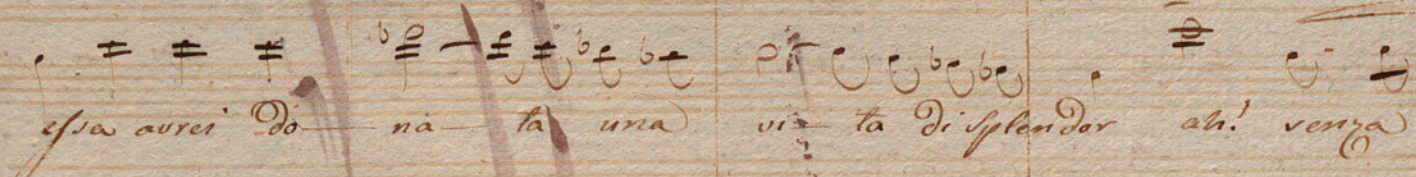 essa avrei do- na- ta una vi- ta di splendor ah! senza